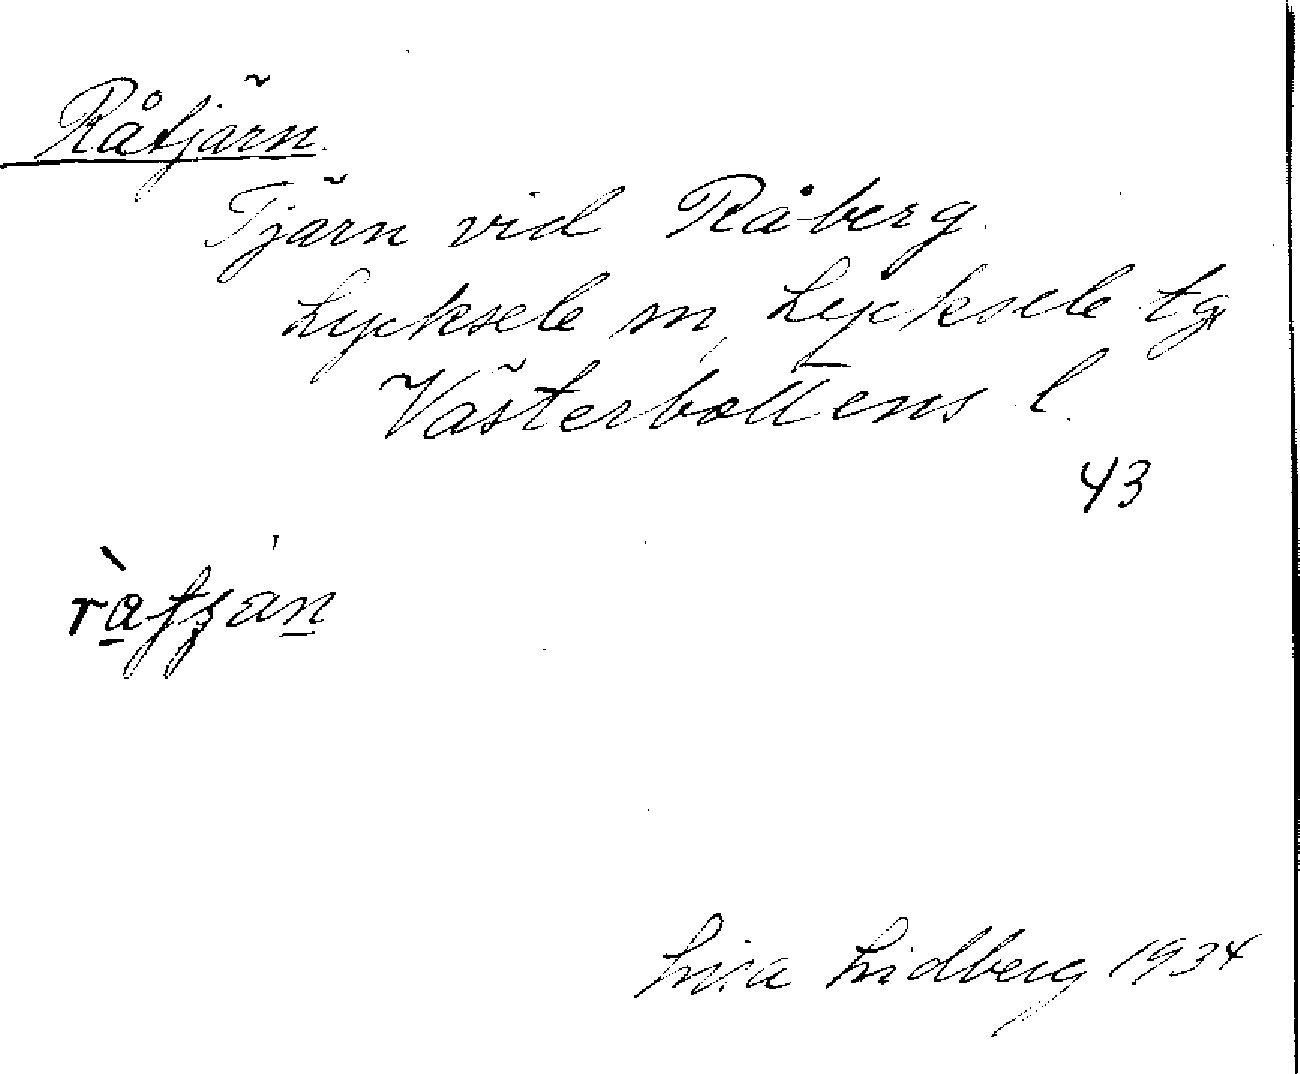 Råtjärn.
Tjärn vid Råberg.
Lycksele sn, Lycksele tg
Västerbottens l.
43
Lisa Lidberg 1934